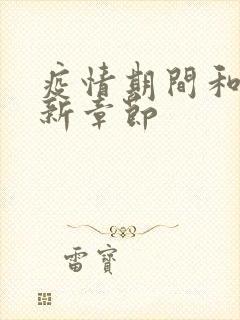 疫情期間和
新章節
雷寶